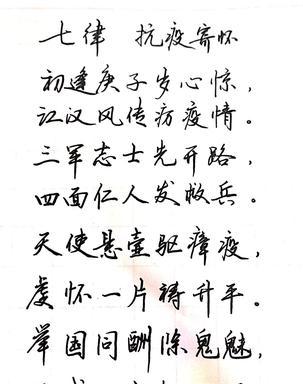 七律 抗疫寄怀
初逢庚子岁心惊，
江汉风传疠疫情。
三军志士先开路，
四面仁人发救兵。
天使悬壶驱瘴疫，
虔怀一片祷升平。
举国同酬除鬼魅，